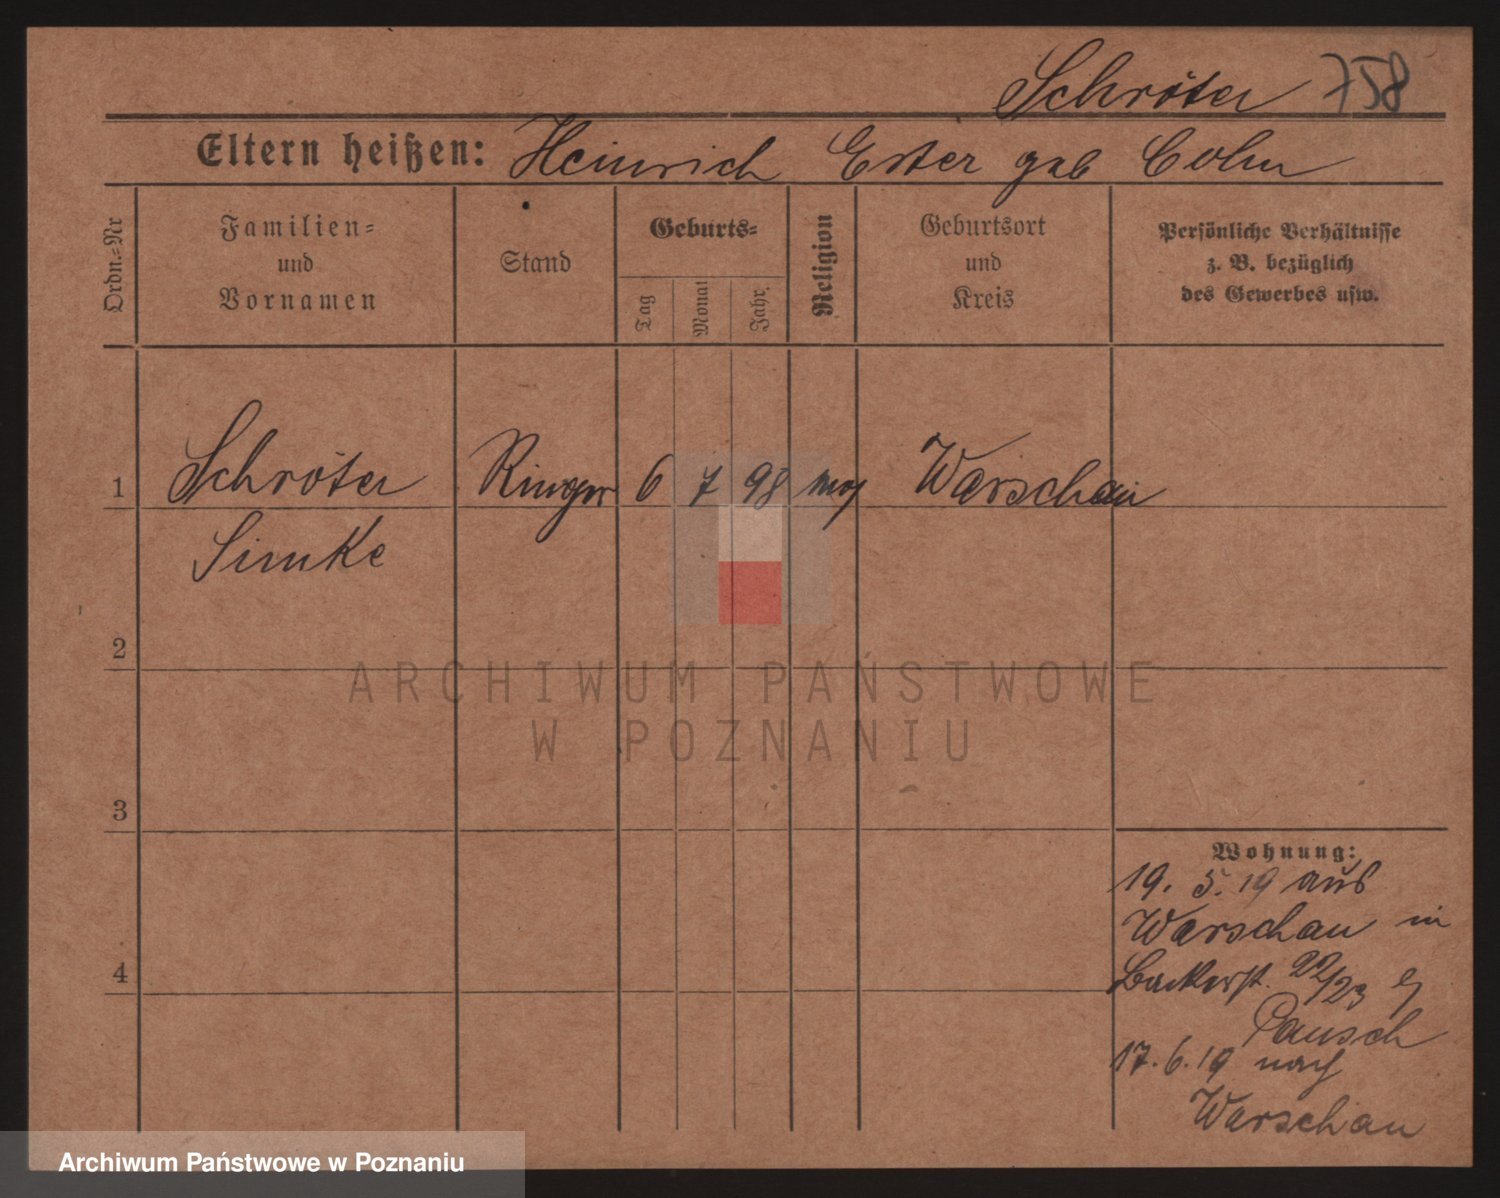 Schröter 758
Eltern heißen: Heinrich Ester geb Cohn
Ordn.=Nr
Familien=
und
Vornamen
Stand
Geburts=
Tag
Monat
Jahr.
Religion
Geburtsort
und
Kreis
Persönliche Verhältnisse
z. B. bezüglich
des Gewerbes usw.
1 Schröter Ringer 6 7 98 mos Warschau
Simke
2
3
4
Wohnung:
19. 5. 19 aus
Warschau in
Bäckerst. 22/23
Pausch
17. 6. 19 nach
Warschau
ARCHIWUM PAŃSTWOWE
W POZNANIU
Archiwum Państwowe w Poznaniu